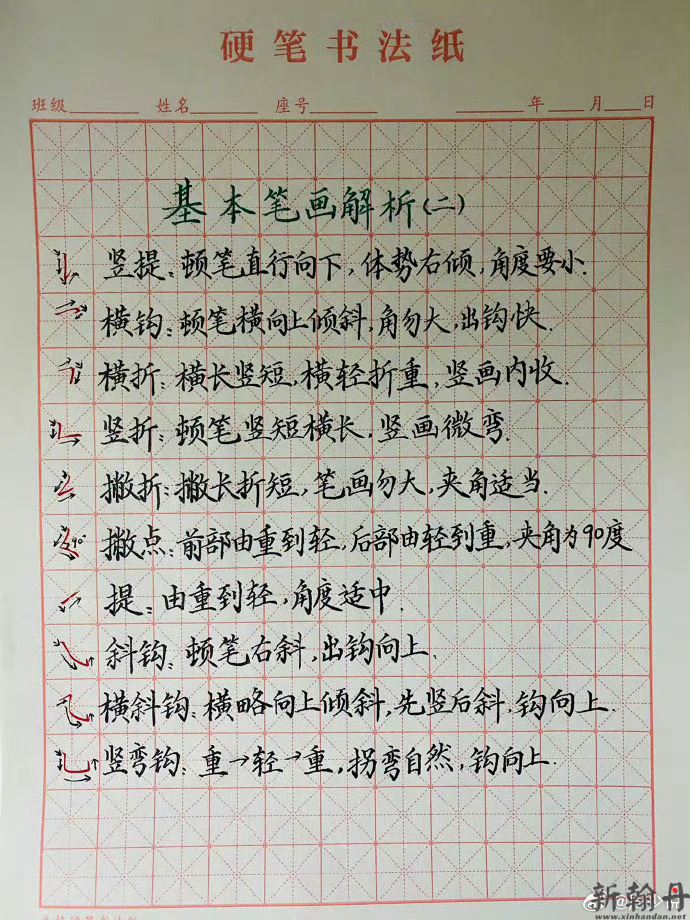 硬笔书法纸
班级 姓名 座号 年 月 日
基本笔画解析(二)
竖提:顿笔直行向下,体势右倾,角度要小.
横钩:顿笔横向上倾斜,角勿大,出钩快.
横折:横长竖短,横轻折重,竖画内收.
竖折:顿笔竖短横长,竖画微弯.
撇折:撇长折短,笔画勿大,夹角适当.
90° 撇点:前部由重到轻,后部由轻到重,夹角为90度
提:由重到轻,角度适中.
斜钩:顿笔右斜,出钩向上.
横斜钩:横略向上倾斜,先竖后斜,钩向上.
竖弯钩:重→轻→重,拐弯自然,钩向上.
新翰丹
www.xinhandan.net